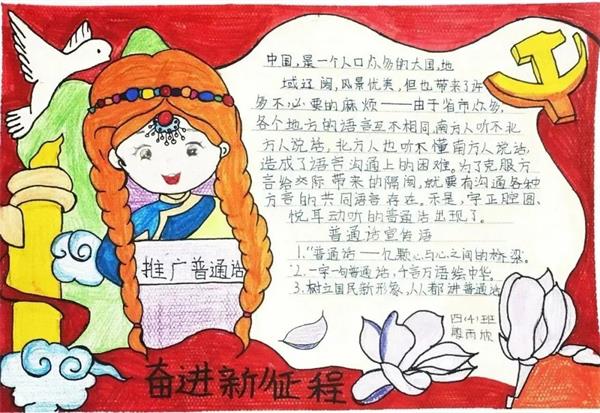 中国,是一个人口众多的大国,地
域辽阔,风景优美,但也带来了许
多不必要的麻烦——由于省市众多,
各个地方的语言互不相同,南方人听不北
方人说话,北方人也听不懂南方人说话,
造成了语言沟通上的困难。为了克服方
言给交际带来的隔阂,就要有沟通各种
方言的共同语言存在。于是,字正腔圆、
悦耳动听的普通话出现了。
普通话宣传语
1.“普通话——亿颗心与心之间的桥梁。
2.一字一句普通话,千言万语绘中华。
3.树立国民新形象,人人都进普通话
推广普通话
四(4)班
雨欣
奋进新征程